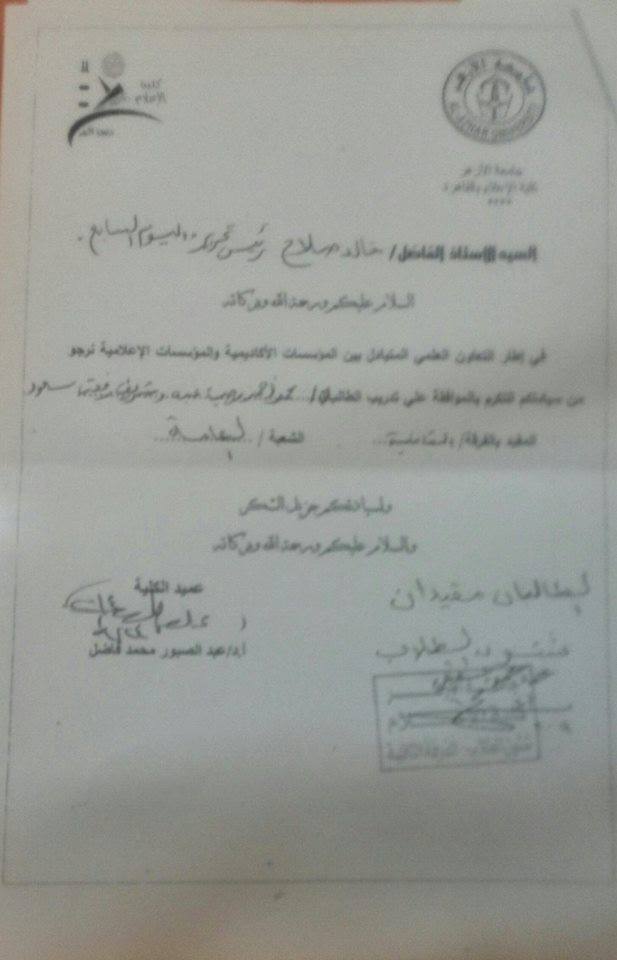 كلية
الإعلام
جامعة الأزهر
AL AZHAR UNIVERSITY
جامعة الأزهر
كلية الإعلام بالقاهرة
****
السيد الاستاذ الفاضل / خالد صلاح رئيس تحرير "اليوم السابع"
السلام عليكم ورحمة الله وبركاته
في إطار التعاون العلمي المتبادل بين المؤسسات الأكاديمية والمؤسسات الإعلامية نرجو
من سيادتكم التكرم بالموافقة على تدريب الطالب /
المقيد بالفرقة / الثانية ... الشعبة / العامة ...
ولسيادتكم جزيل الشكر
والسلام عليكم ورحمة الله وبركاته
عميد الكلية
أ.د/ عبد الصبور محمد فاضل
الطالبان مقيدان
شئون الطلاب
شئون الطلاب - الفرقة الثانية